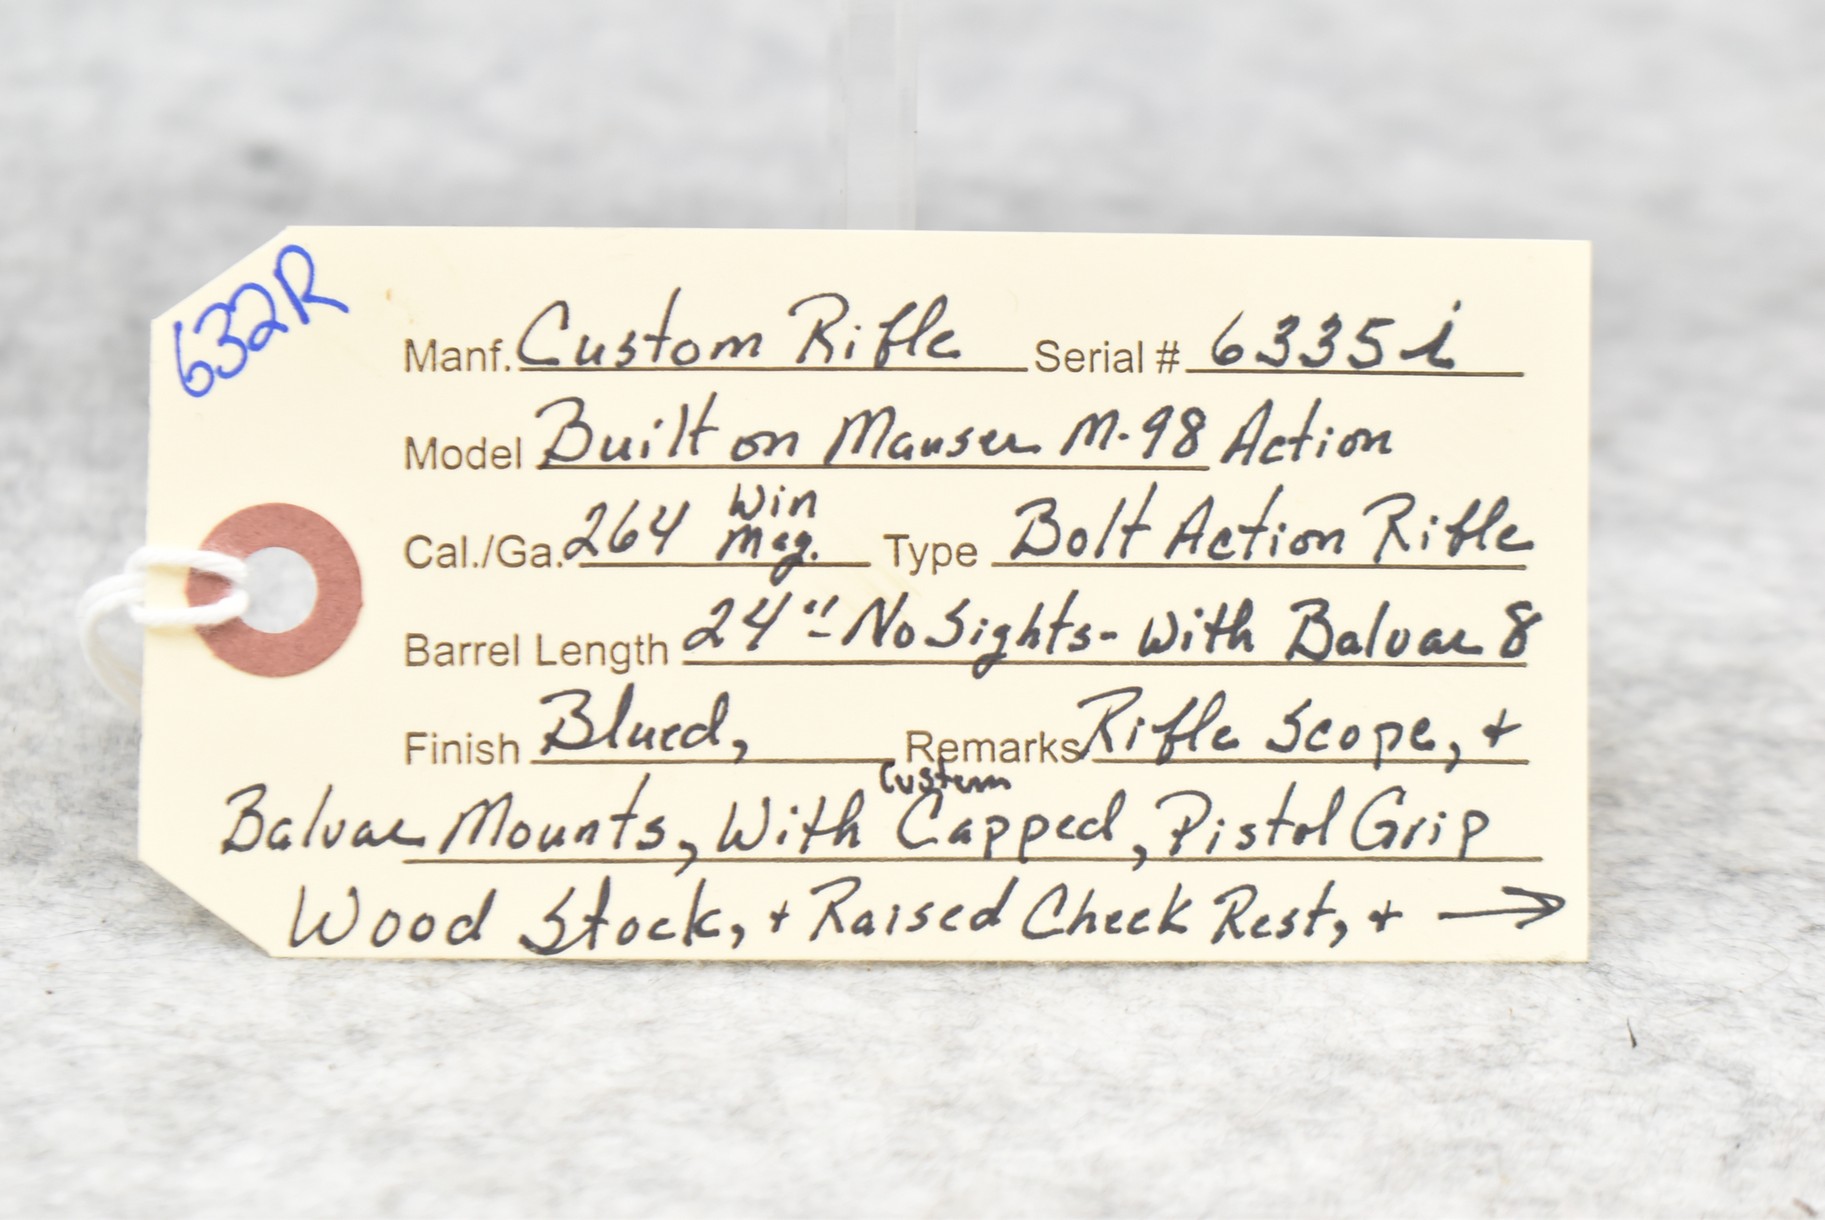 632R
Manf. Custom Rifle Serial # 6335i
Model Built on Mauser M-98 Action
Cal./Ga. 264 Win Mag. Type Bolt Action Rifle
Barrel Length 24" - No Sights - With Balvar 8
Finish Blued, Remarks Rifle Scope, +
Balvar Mounts, With Custom Capped, Pistol Grip
Wood Stock, + Raised Cheek Rest, + →